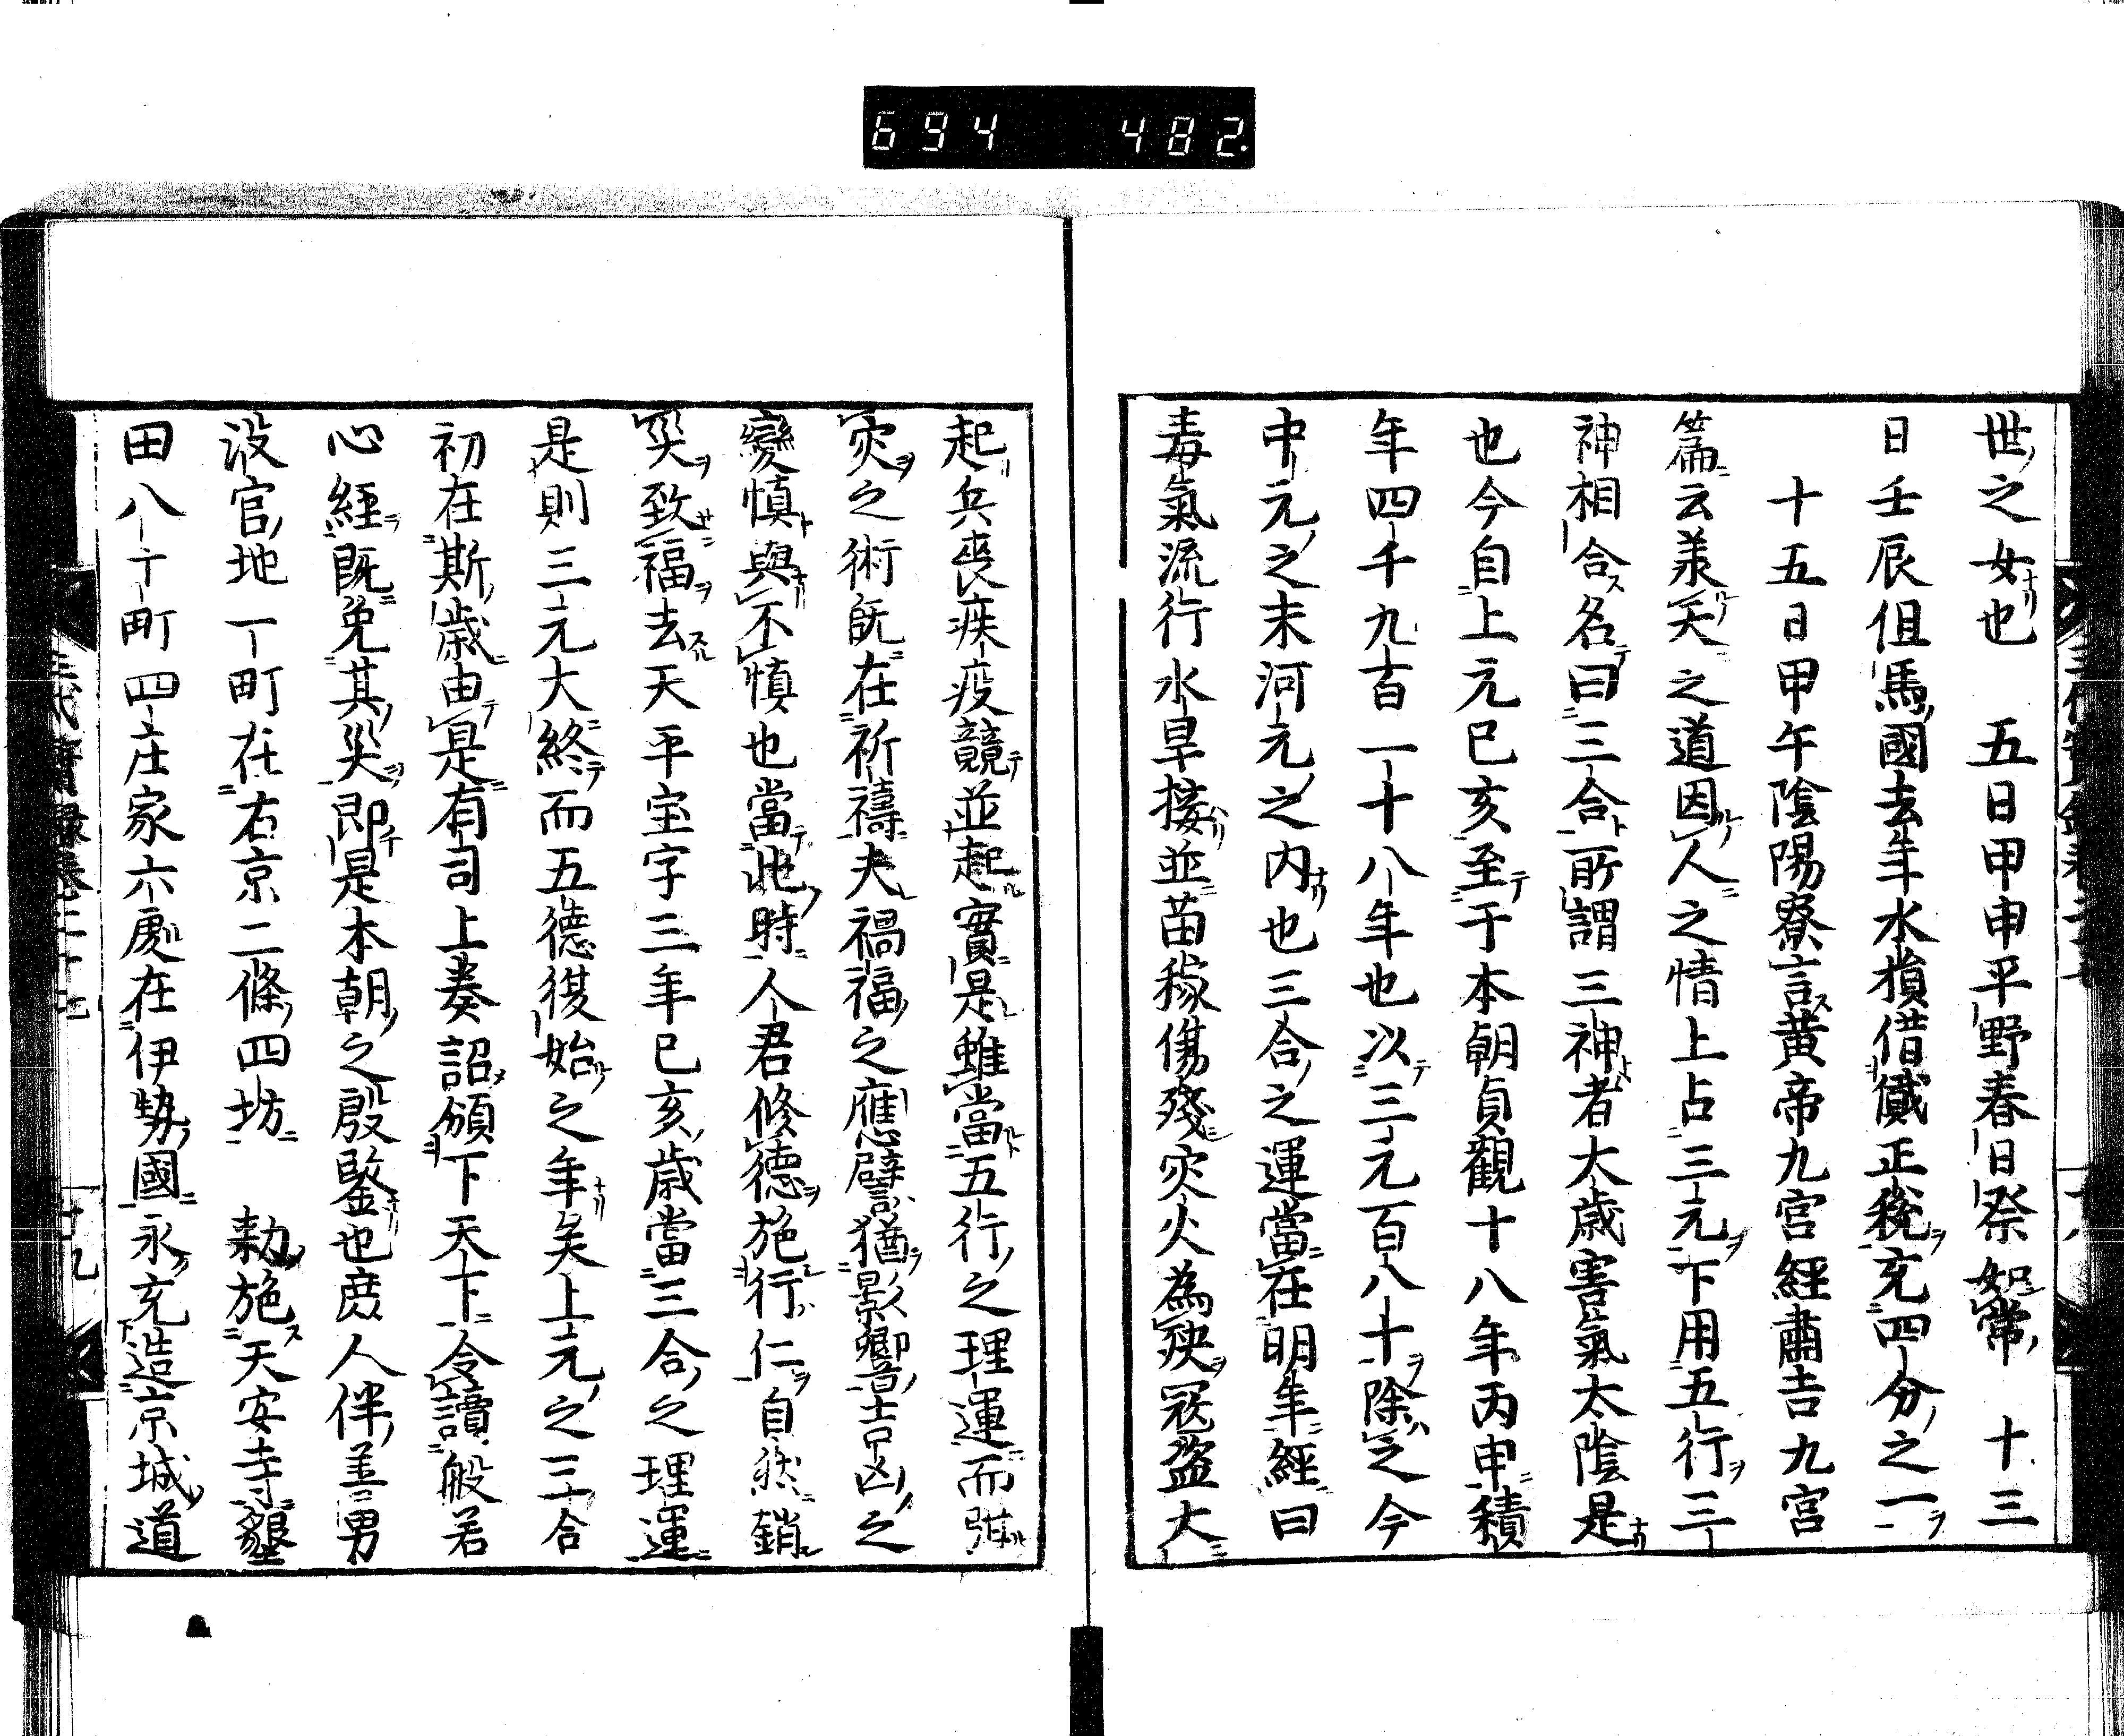 694 482.
世之女也　五日甲申平野春日祭如常　十三
日壬辰但馬國去年水損借貸正税充四分之一
十五日甲午陰陽寮言黄帝九宮經肅吉九宮
篇云羕天之道因人之情上占三元下用五行三
神相合名曰三合所謂三神者大歳害氣太陰是
也今自上元已亥至于本朝貞觀十八年丙申積
年四千九百一十八年也以三元百八十除之今
中元之末河元之内也三合之運當在明年經曰
毒氣流行水旱接並苗稼傷殘灾火為殃冦盜大
起兵喪疾疫競並起實是雖當五行之理運而弭
灾之術既在祈禱夫禍福之應譬猶影響吉凶之
變慎與不慎也當此時人君修德施行仁自然銷
災致福去天平宝字三年已亥歳當三合之理運
是則三元大終而五德復始之年矣上元之三合
初在斯歳由是有司上奏詔頒下天下令讀般若
心經既免其災即是本朝之殷鑒也庶人伴善男
沒官地一町在右京二條四坊　勅施天安寺墾
田八十町四庄家六處在伊勢國永充造京城道
三代實録卷二十七　十九